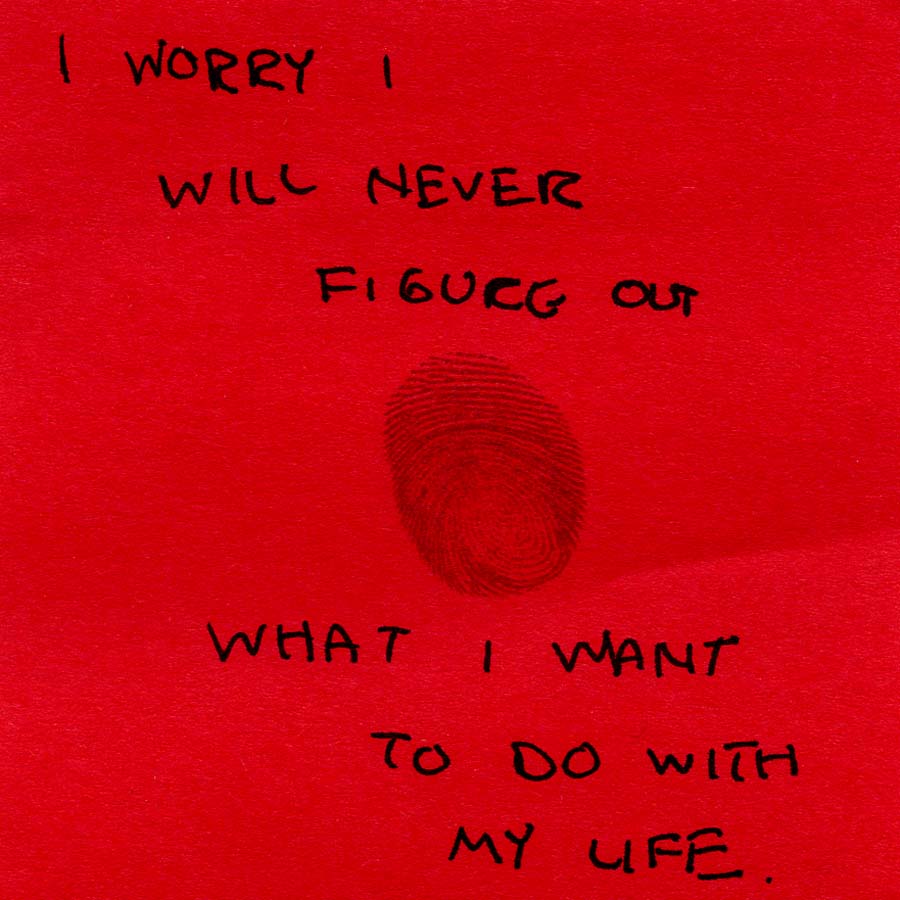 I WORRY I
WILL NEVER
FIGURE OUT
WHAT I WANT
TO DO WITH
MY LIFE.